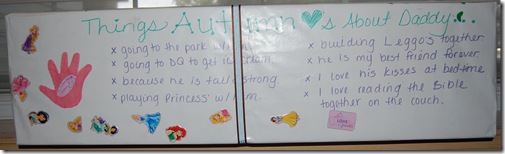 Things Autumn ♥s About Daddy...
x going to the park w/ him.
x going to DQ to get ice cream.
x because he is tall & strong.
x playing Princess' w/ him.
x building Leggo's together.
x he is my best friend forever.
x I love his kisses at bedtime.
x I love reading the Bible
together on the couch.